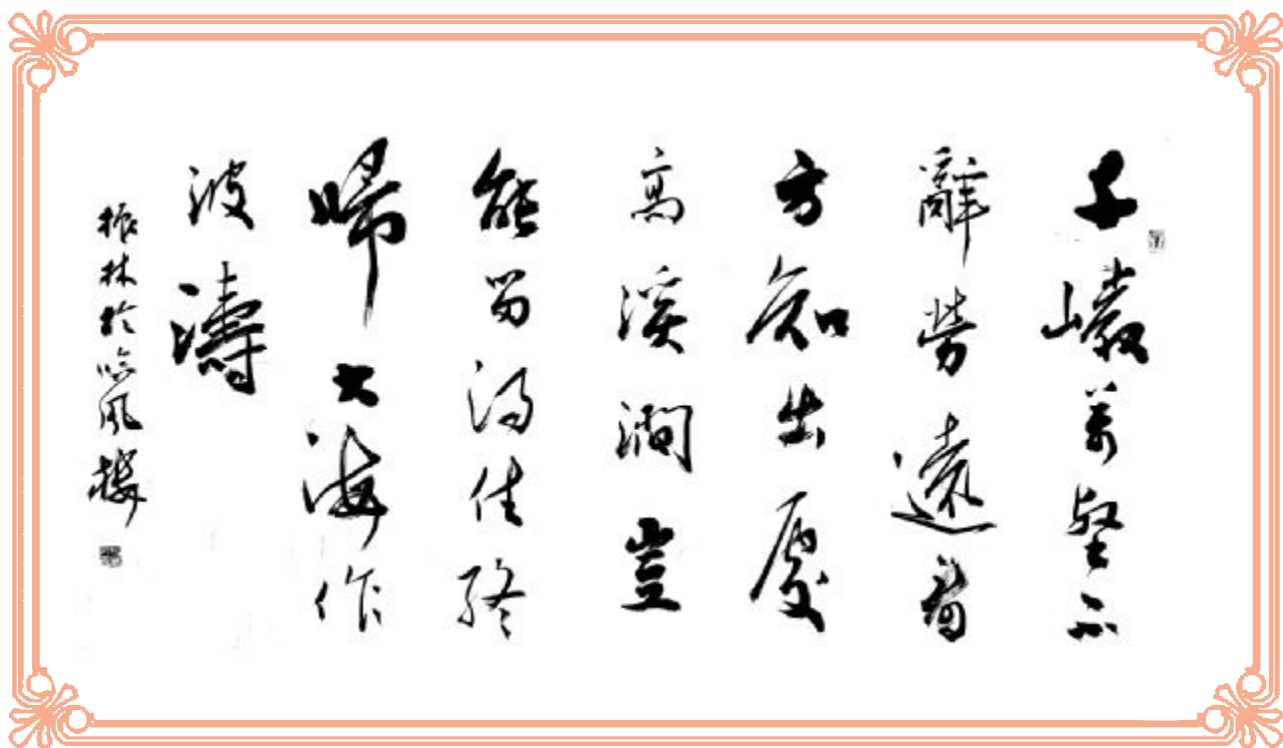 千巖萬壑不
辭勞遠看
方知出處
高溪澗豈
能留得住終
歸大海作
波濤
振林於臨風樓